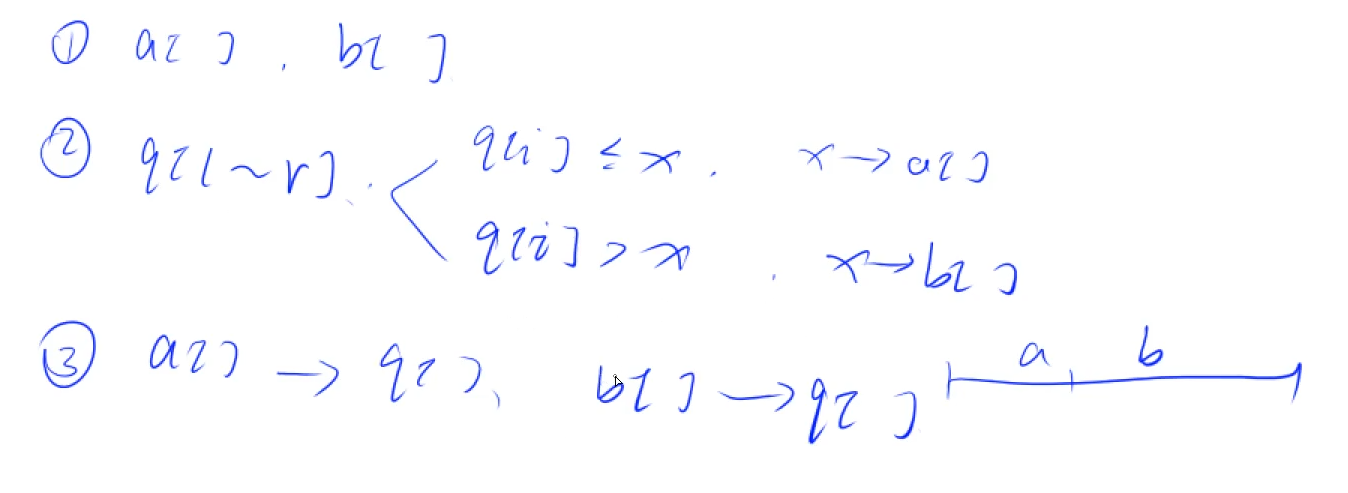 ① a[ ] , b[ ]
② q[l~r] . q[i] ≤ x . x → a[ ]
q[i] > x . x → b[ ]
③ a[ ] → q[ ], b[ ] → q[ ] a b